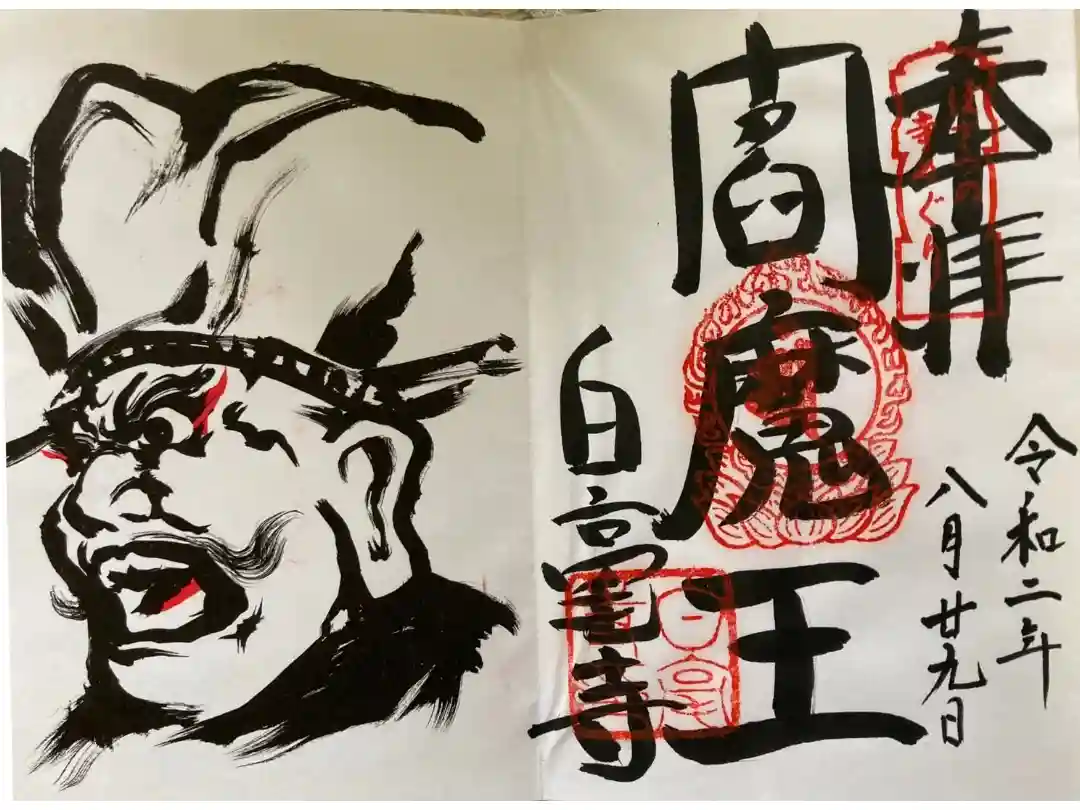 奉拝
令和二年
八月廿九日
閻魔王
白毫寺